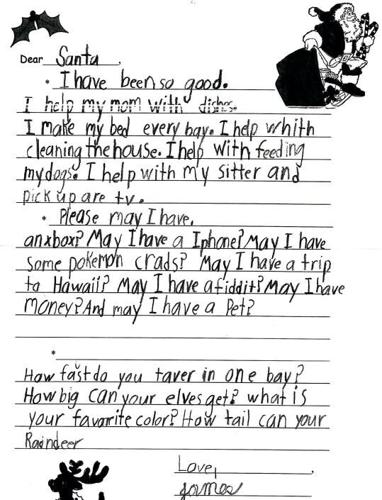 Dear Santa,
I have been so good.
I help my mom with dishes.
I make my bed every bay. I help whith
cleaning the house. I help with feeding
my dogs. I help with my sitter and
pick up are tv.
Please may I have,
an xbox? May I have a Iphone? May I have
some pokemon crads? May I have a trip
to Hawaii? May I have a fiddit? May I have
money? And may I have a Pet?
How fast do you taver in one bay?
How big can your elves get? what is
your favorite color? How tall can your
Raindeer
Love,
James